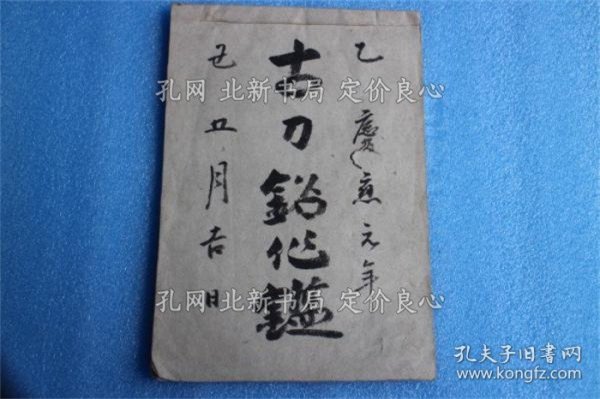 乙 慶應元年
古刀銘作鑑
丑 五月吉日
孔网 北新书局 定价良心
孔网 北新书局 定价良心
孔网 北新书局 定价良心
孔夫子旧书网
www.kongfz.com